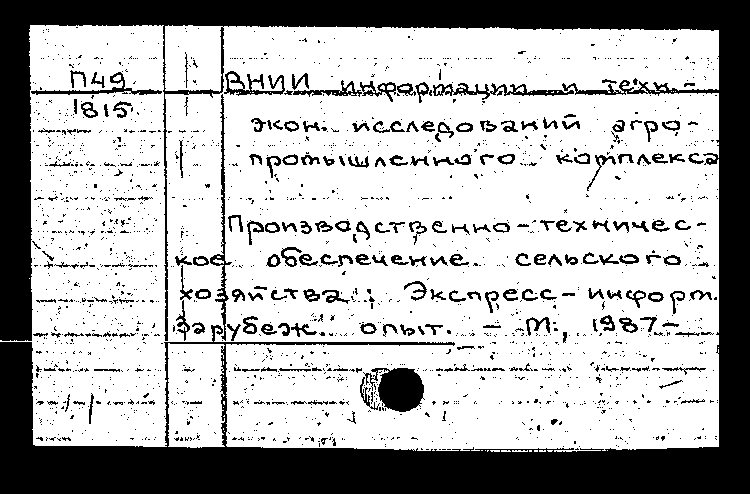 П49
1815
ВНИИ информации и техн.-
экон. исследований агро-
промышленного комплекса
Производственно-техничес-
кое обеспечение сельского
хозяйства: Экспресс-информ.
Зарубеж. опыт. - М., 1987-